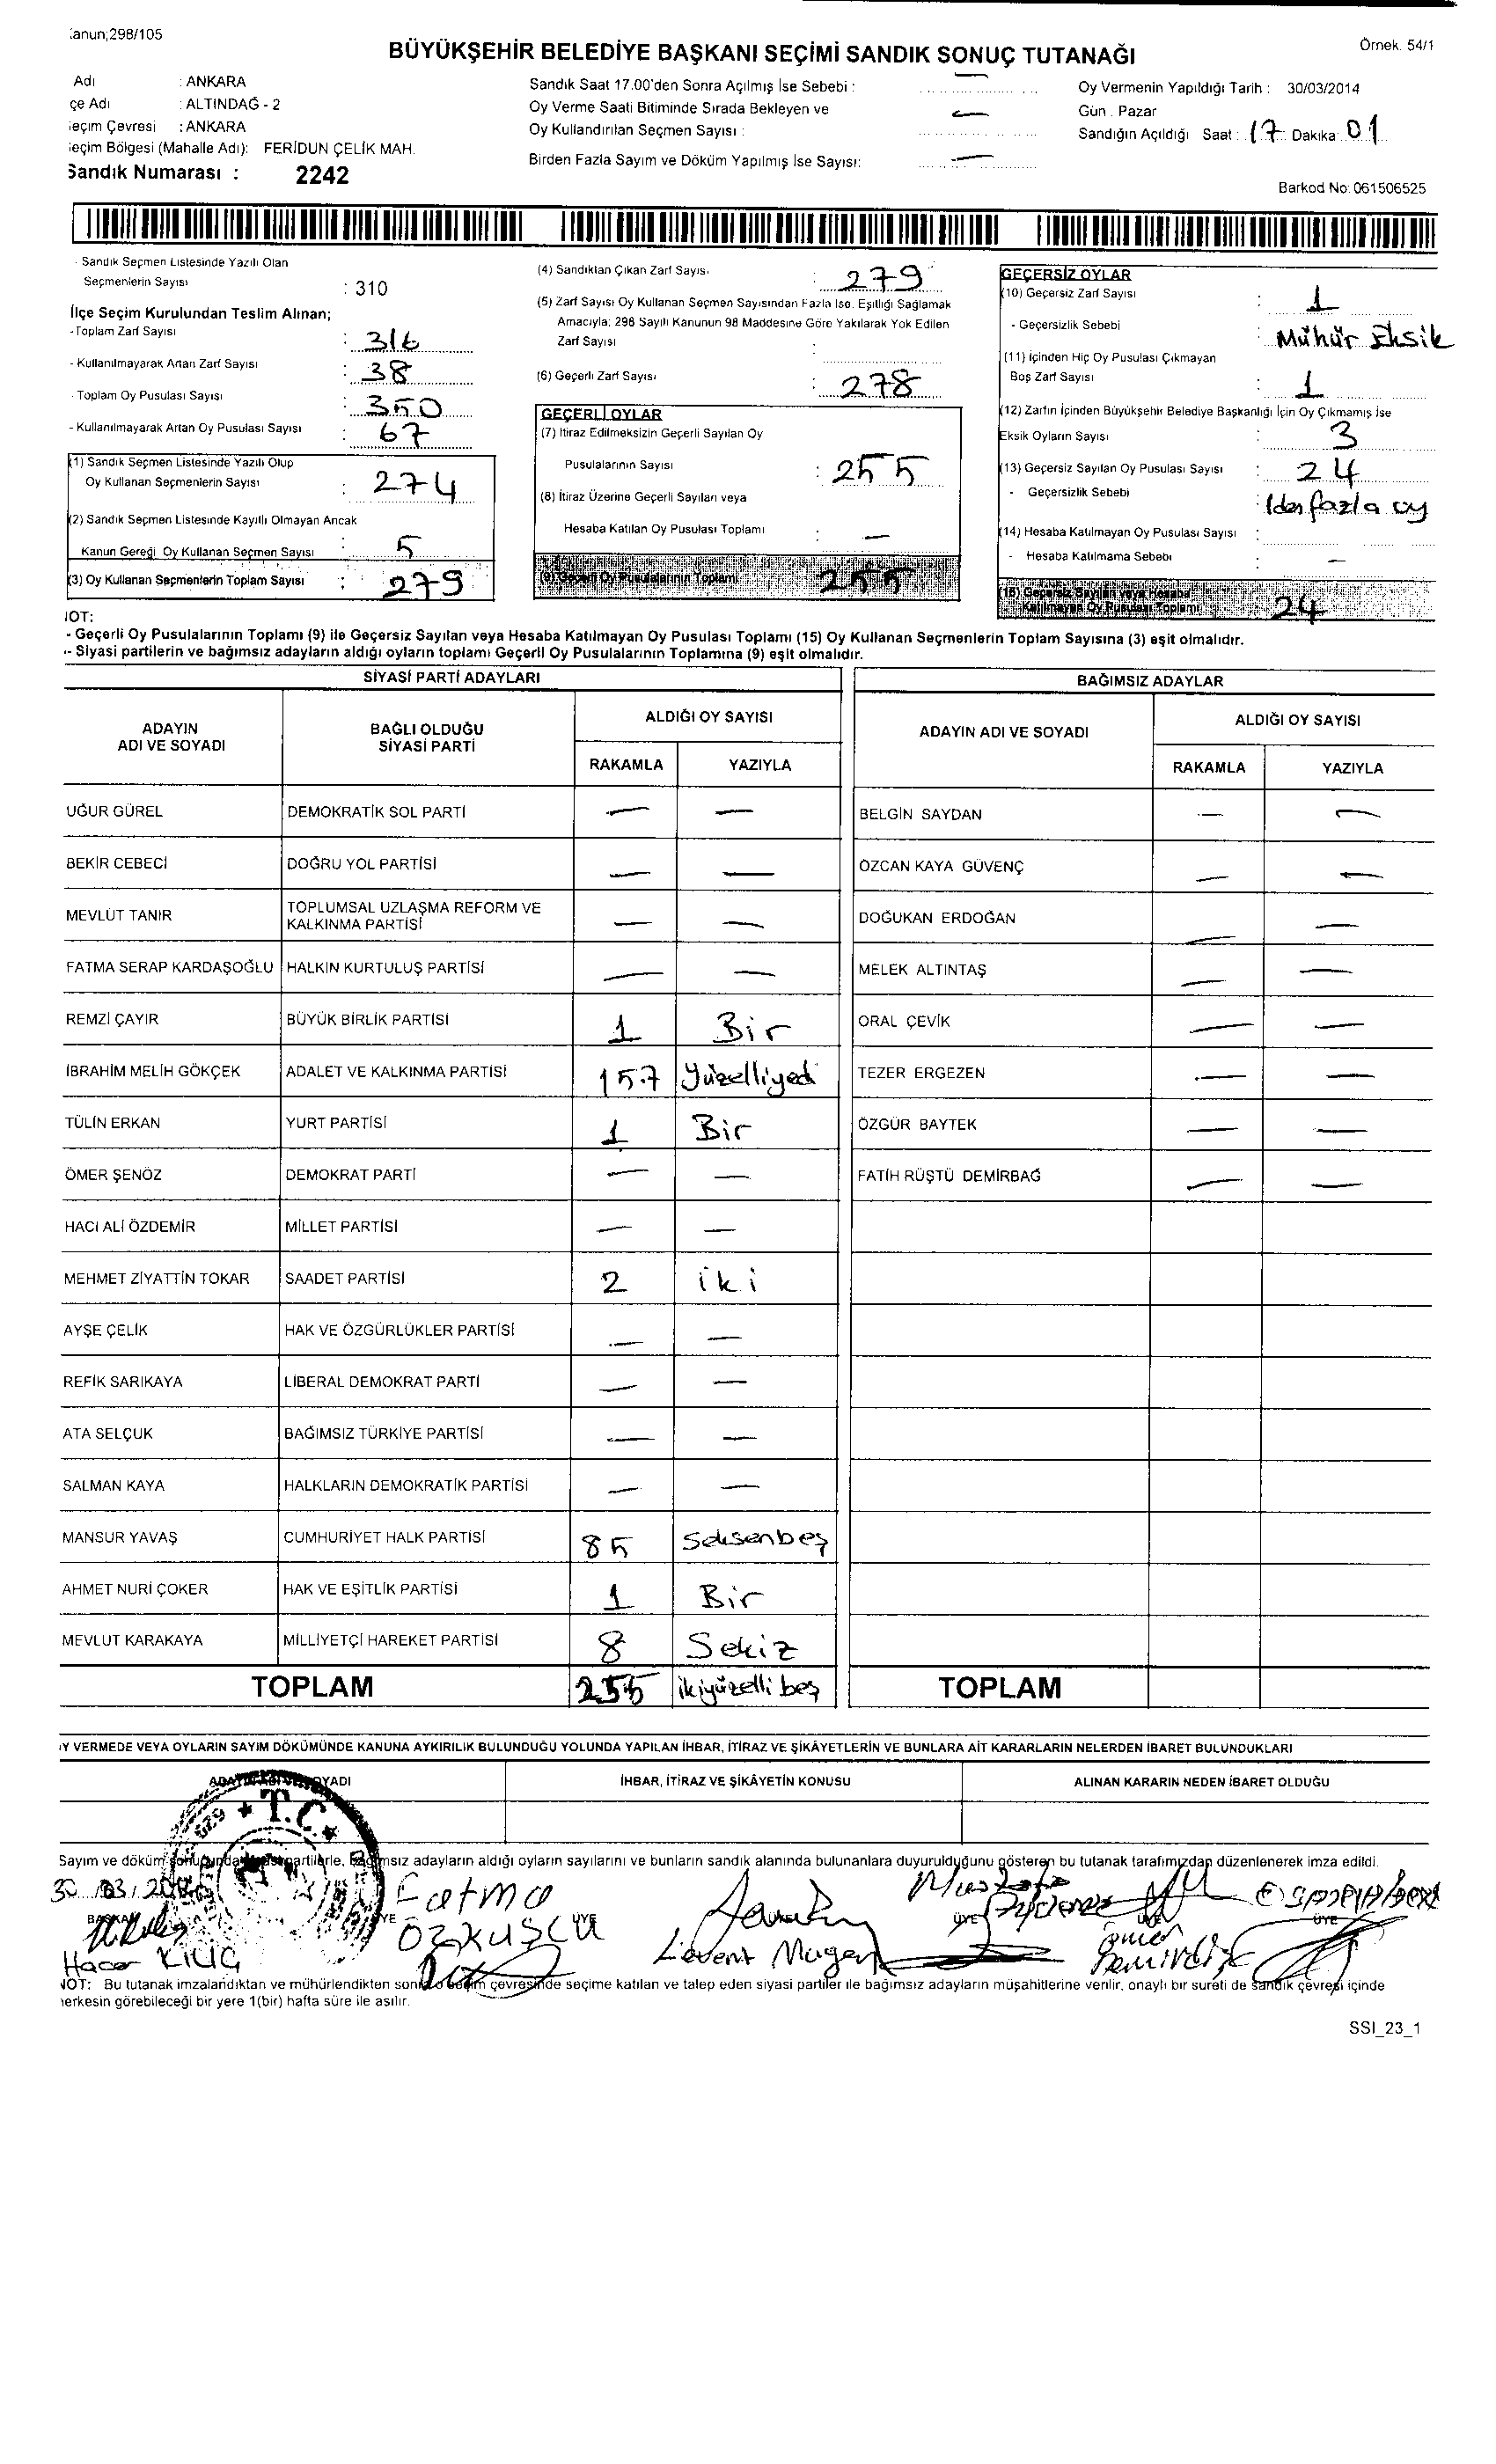 anun;298/105
Örnek. 54/1
BÜYÜKŞEHİR BELEDİYE BAŞKANI SEÇİMİ SANDIK SONUÇ TUTANAĞI
Adı : ANKARA
çe Adı : ALTINDAĞ - 2
eçim Çevresi : ANKARA
eçim Bölgesi (Mahalle Adı): FERİDUN ÇELİK MAH.
Sandık Numarası : 2242
Sandık Saat 17.00'den Sonra Açılmış İse Sebebi : —
Oy Verme Saati Bitiminde Sırada Bekleyen ve
Oy Kullandırılan Seçmen Sayısı : —
Birden Fazla Sayım ve Döküm Yapılmış İse Sayısı: —
Oy Vermenin Yapıldığı Tarih : 30/03/2014
Gün : Pazar
Sandığın Açıldığı Saat : 17 Dakika : 01
Barkod No: 061506525
- Sandık Seçmen Listesinde Yazılı Olan
Seçmenlerin Sayısı : 310
İlçe Seçim Kurulundan Teslim Alınan;
- Toplam Zarf Sayısı : 316
- Kullanılmayarak Artan Zarf Sayısı : 38
- Toplam Oy Pusulası Sayısı : 350
- Kullanılmayarak Artan Oy Pusulası Sayısı : 67
(1) Sandık Seçmen Listesinde Yazılı Olup
Oy Kullanan Seçmenlerin Sayısı : 274
(2) Sandık Seçmen Listesinde Kayıtlı Olmayan Ancak
Kanun Gereği Oy Kullanan Seçmen Sayısı : 5
(3) Oy Kullanan Seçmenlerin Toplam Sayısı : 279
(4) Sandıktan Çıkan Zarf Sayısı : 279
(5) Zarf Sayısı Oy Kullanan Seçmen Sayısından Fazla İse, Eşitliği Sağlamak
Amacıyla; 298 Sayılı Kanunun 98 Maddesine Göre Yakılarak Yok Edilen
Zarf Sayısı :
(6) Geçerli Zarf Sayısı : 278
GEÇERLİ OYLAR
(7) İtiraz Edilmeksizin Geçerli Sayılan Oy
Pusulalarının Sayısı : 255
(8) İtiraz Üzerine Geçerli Sayılan veya
Hesaba Katılan Oy Pusulası Toplamı : —
(9) Geçerli Oy Pusulalarının Toplamı 255
GEÇERSİZ OYLAR
(10) Geçersiz Zarf Sayısı : 1
- Geçersizlik Sebebi : Mühür Eksik
(11) İçinden Hiç Oy Pusulası Çıkmayan
Boş Zarf Sayısı : 1
(12) Zarfın İçinden Büyükşehir Belediye Başkanlığı İçin Oy Çıkmamış İse
Eksik Oyların Sayısı : 3
(13) Geçersiz Sayılan Oy Pusulası Sayısı : 24
- Geçersizlik Sebebi : 1den fazla oy
(14) Hesaba Katılmayan Oy Pusulası Sayısı :
- Hesaba Katılmama Sebebi : —
(15) Geçersiz Sayılan veya Hesaba
Katılmayan Oy Pusulası Toplamı 24
NOT:
- Geçerli Oy Pusulalarının Toplamı (9) ile Geçersiz Sayılan veya Hesaba Katılmayan Oy Pusulası Toplamı (15) Oy Kullanan Seçmenlerin Toplam Sayısına (3) eşit olmalıdır.
- Siyasi partilerin ve bağımsız adayların aldığı oyların toplamı Geçerli Oy Pusulalarının Toplamına (9) eşit olmalıdır.
SİYASİ PARTİ ADAYLARI
ADAYIN ADI VE SOYADI BAĞLI OLDUĞU SİYASİ PARTİ ALDIĞI OY SAYISI
RAKAMLA YAZIYLA
UĞUR GÜREL DEMOKRATİK SOL PARTİ — —
BEKİR CEBECİ DOĞRU YOL PARTİSİ — —
MEVLÜT TANIR TOPLUMSAL UZLAŞMA REFORM VE KALKINMA PARTİSİ — —
FATMA SERAP KARDAŞOĞLU HALKIN KURTULUŞ PARTİSİ — —
REMZİ ÇAYIR BÜYÜK BİRLİK PARTİSİ 1 Bir
İBRAHİM MELİH GÖKÇEK ADALET VE KALKINMA PARTİSİ 157 Yüzelliyedi
TÜLİN ERKAN YURT PARTİSİ 1 Bir
ÖMER ŞENÖZ DEMOKRAT PARTİ — —
HACI ALİ ÖZDEMİR MİLLET PARTİSİ — —
MEHMET ZİYATTİN TOKAR SAADET PARTİSİ 2 iki
AYŞE ÇELİK HAK VE ÖZGÜRLÜKLER PARTİSİ — —
REFİK SARIKAYA LİBERAL DEMOKRAT PARTİ — —
ATA SELÇUK BAĞIMSIZ TÜRKİYE PARTİSİ — —
SALMAN KAYA HALKLARIN DEMOKRATİK PARTİSİ — —
MANSUR YAVAŞ CUMHURİYET HALK PARTİSİ 85 Seksenbeş
AHMET NURİ ÇOKER HAK VE EŞİTLİK PARTİSİ 1 Bir
MEVLUT KARAKAYA MİLLİYETÇİ HAREKET PARTİSİ 8 Sekiz
TOPLAM 255 ikiyüzelli beş
BAĞIMSIZ ADAYLAR
ADAYIN ADI VE SOYADI ALDIĞI OY SAYISI
RAKAMLA YAZIYLA
BELGİN SAYDAN — —
ÖZCAN KAYA GÜVENÇ — —
DOĞUKAN ERDOĞAN — —
MELEK ALTINTAŞ — —
ORAL ÇEVİK — —
TEZER ERGEZEN — —
ÖZGÜR BAYTEK — —
FATİH RÜŞTÜ DEMİRBAĞ — —
TOPLAM
Y VERMEDE VEYA OYLARIN SAYIM DÖKÜMÜNDE KANUNA AYKIRILIK BULUNDUĞU YOLUNDA YAPILAN İHBAR, İTİRAZ VE ŞİKÂYETLERİN VE BUNLARA AİT KARARLARIN NELERDEN İBARET BULUNDUKLARI
ADAYIN ADI VE SOYADI İHBAR, İTİRAZ VE ŞİKÂYETİN KONUSU ALINAN KARARIN NEDEN İBARET OLDUĞU
T.C.
Sayım ve döküm sonucunda siyasi partilerle, bağımsız adayların aldığı oyların sayılarını ve bunların sandık alanında bulunanlara duyurulduğunu gösteren bu tutanak tarafımızdan düzenlenerek imza edildi.
30/03/2014
BAŞKAN ÜYE ÜYE ÜYE ÜYE ÜYE ÜYE
Hacer KILIÇ
Fatma ÖZKUŞÇU
Levent
Mustafa
Ömer Demirdize
NOT: Bu tutanak imzalandıktan ve mühürlendikten sonra o seçim çevresinde seçime katılan ve talep eden siyasi partiler ile bağımsız adayların müşahitlerine verilir, onaylı bir sureti de sandık çevresi içinde
herkesin görebileceği bir yere 1(bir) hafta süre ile asılır.
SSI_23_1